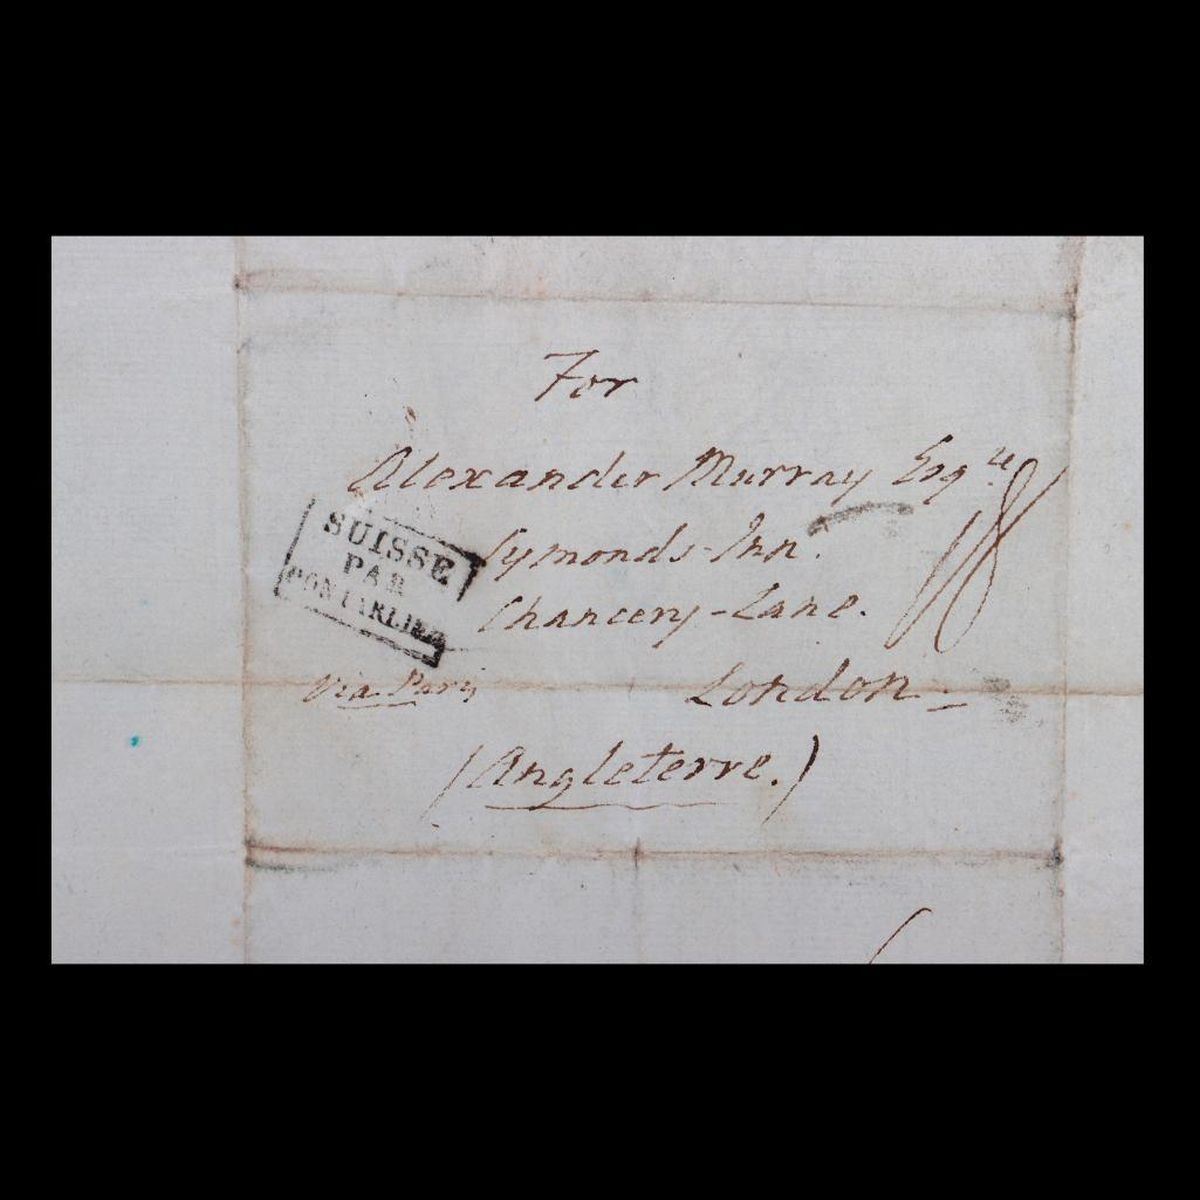 For
Alexander Murray Esqre.
Symonds-Inn.
Chancery-Lane.
London
(Angleterre.)
via Paris
SUISSE
PAR
PONTARLIER